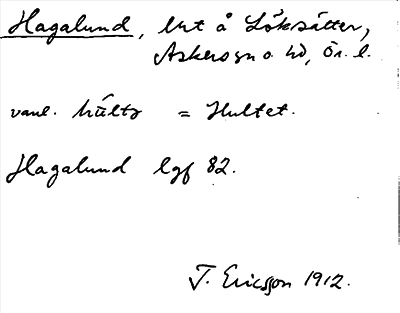 Hagalund, lht å Löksätter,
Askers sn o. hd, Ör. l.
vanl. húltə = Hultet.
Hagalund lgf 82.
T. Ericsson 1912.